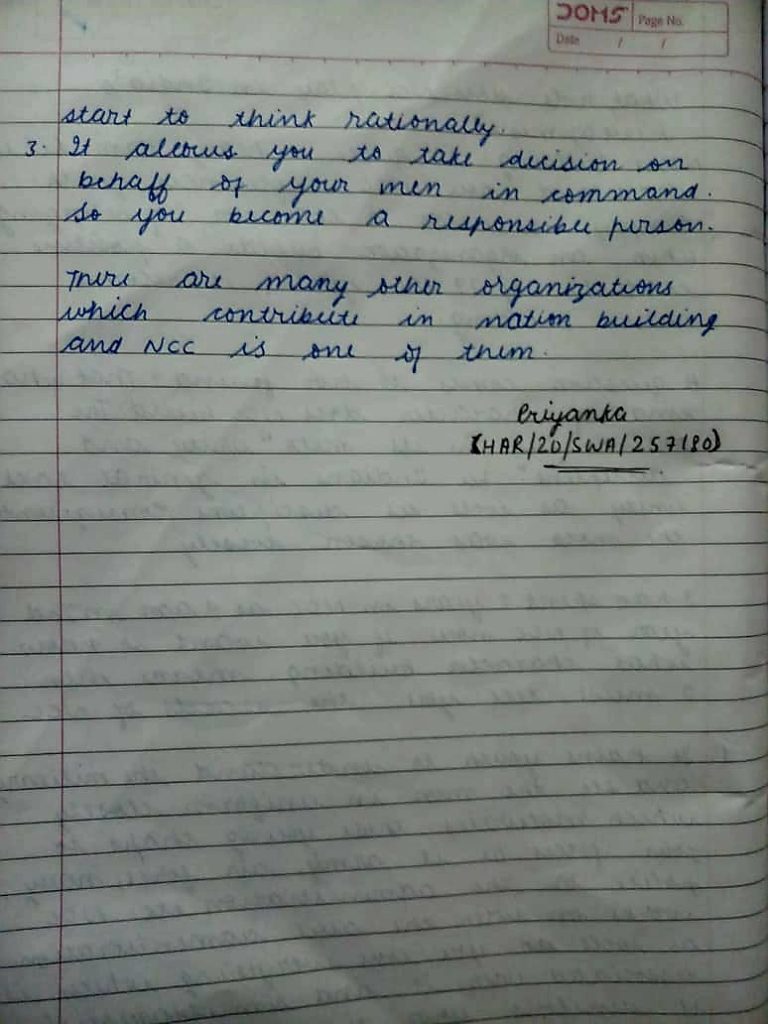 DOMS Page No.
Date / /
start to think rationally.
3. It allows you to take decision on
behaff of your men in command.
So you become a responsible person.
There are many other organizations
which contribute in nation building
and NCC is one of them.
Priyanka
(HAR/20/SWA/257180)